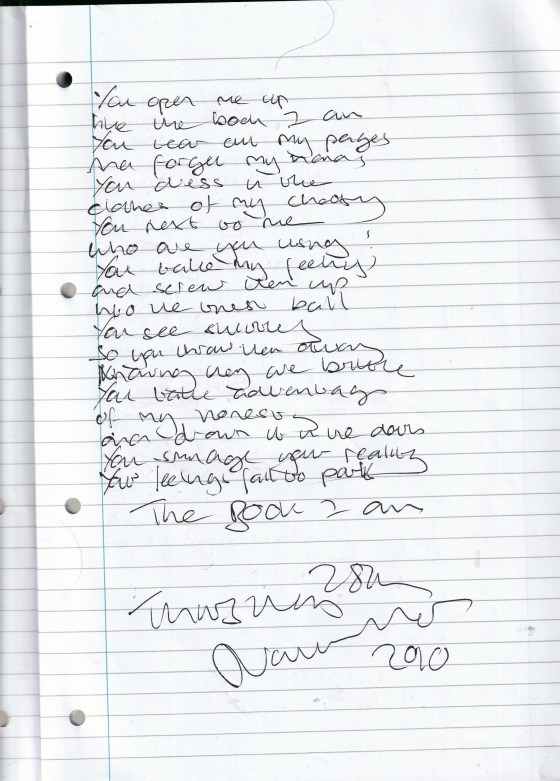 You open me up
like the book I am
You tear out my pages
And forget my
You dress in the
clothes of my choosing
You next to me
who are you using?
You take my feelings
and screw them up
into the ball
You see
So you throw them away
Knowing they are brittle
You take advantage
of my honesty
and drown it in the
You smudge your reality
Your feelings fail to park
The Book I am
28th
2010